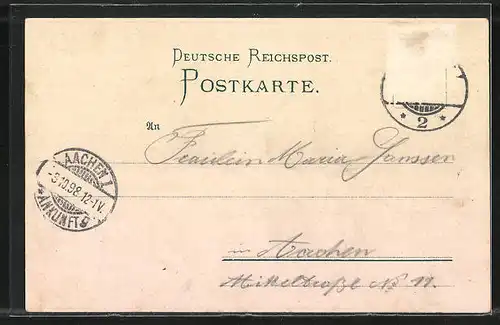 DEUTSCHE REICHSPOST.
POSTKARTE.
* 2 *
An
Fräulein Maria Janssen
AACHEN 1
-3.10.98.12-1V.
*ANKUNFT 9
in Aachen
No 11.